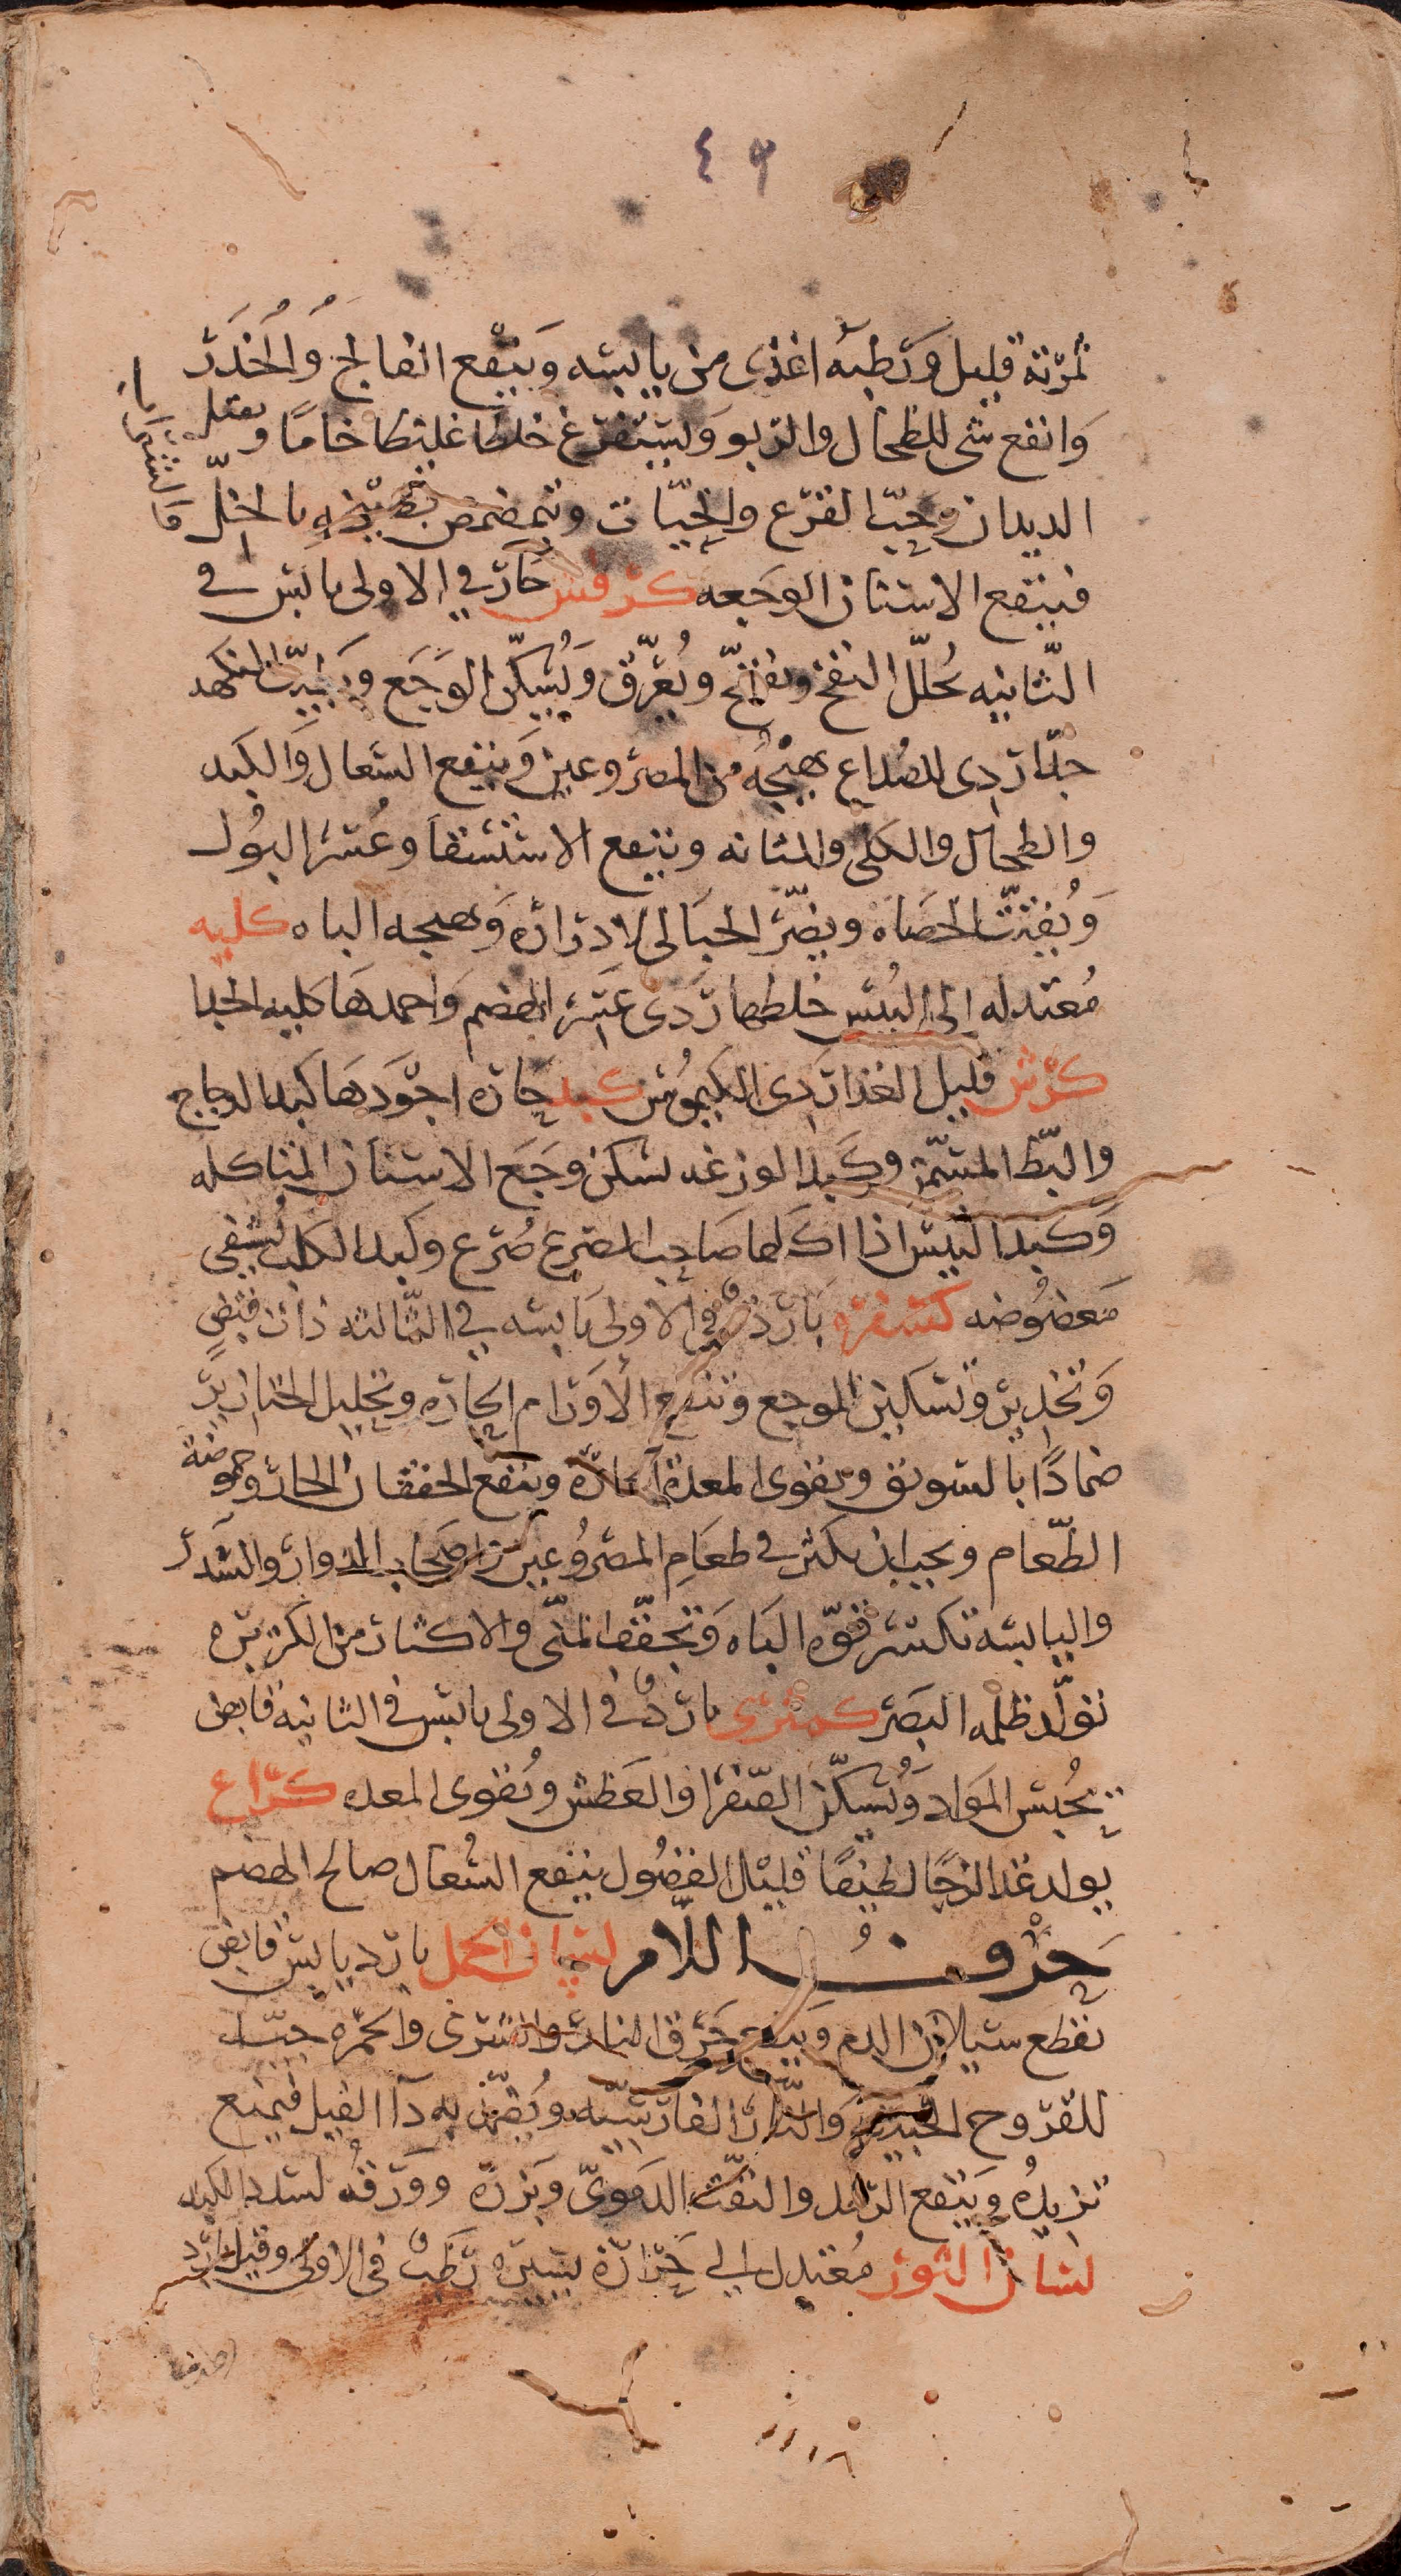 ٤٦
ثمرته قليل ورطبه اغذى من يابسه وينفع الفالج والخدر
وانفع شى للطحال والربو ويستفرغ خلطا غليظا خاما ويقتل
الديدان وحب القرع والحيات ويتمضمض بطبيخه بالخل
فينفع الاسنان الوجعه كرفس حار في الاولى يابس في
الثانيه يحلل النفخ ويفتح ويعرق ويسكن الوجع ويطيب النكهه
جدا ردى للصداع يهيجه من المصروعين وينفع السعال والكبد
والطحال والكلى والمثانه وينفع الاستسقا وعسر البول
ويفتت الحصاه ويضر الحبالى لادراره وتهيجه الباه كليه
معتدله الى اليبس خلطها ردى عسر الهضم واحمدها كليه الجدا
كرش قليل الغذا ردى الكيموس كبد حاره اجودها كبد الدجاج
والبط المسمن وكبد الوزغه تسكن وجع الاسنان المتاكله
وكبد التيس اذا اكلها صاحب الصرع صرع وكبد الكلب تشفي
معضوضه كسفره بارده في الاولى يابسه في الثالثه ذات قبض
وتخدير وتسكين الموجع وتنفع الاورام الحاره وتحليل الخنازير
ضمادا بالسويق وتقوى المعدة الحاره وينفع الخفقان الحار وحموضة
الطعام ويجب ان يكثر في طعام المصروعين واصحاب الدوار والسدر
واليابسه تكسر قوه الباه وتجفف المنى والاكثار من الكزبره
تولد ظلمه البصر كمثرى بارد في الاولى يابس في الثانيه قابض
يحبس المواد ويسكن الصفرا والعطش ويقوى المعده كراع
يولد غذا لزجا لطيفا قليل الفضول ينفع السعال صالح الهضم
حرف اللام لسان الحمل بارد يابس قابض
يقطع سيلان الدم وينفع حرق النار والشرى والحمره جيد
للقروح الخبيثه والنار الفارسيه ويضمد به دآ الفيل فيمنع
تزيده وينفع الرمد والنفث الدموى وبزره وورقه لسدد الكبد
لسان الثور معتدل الي حرارة يسيره رطب في الاولى وقيل بارد